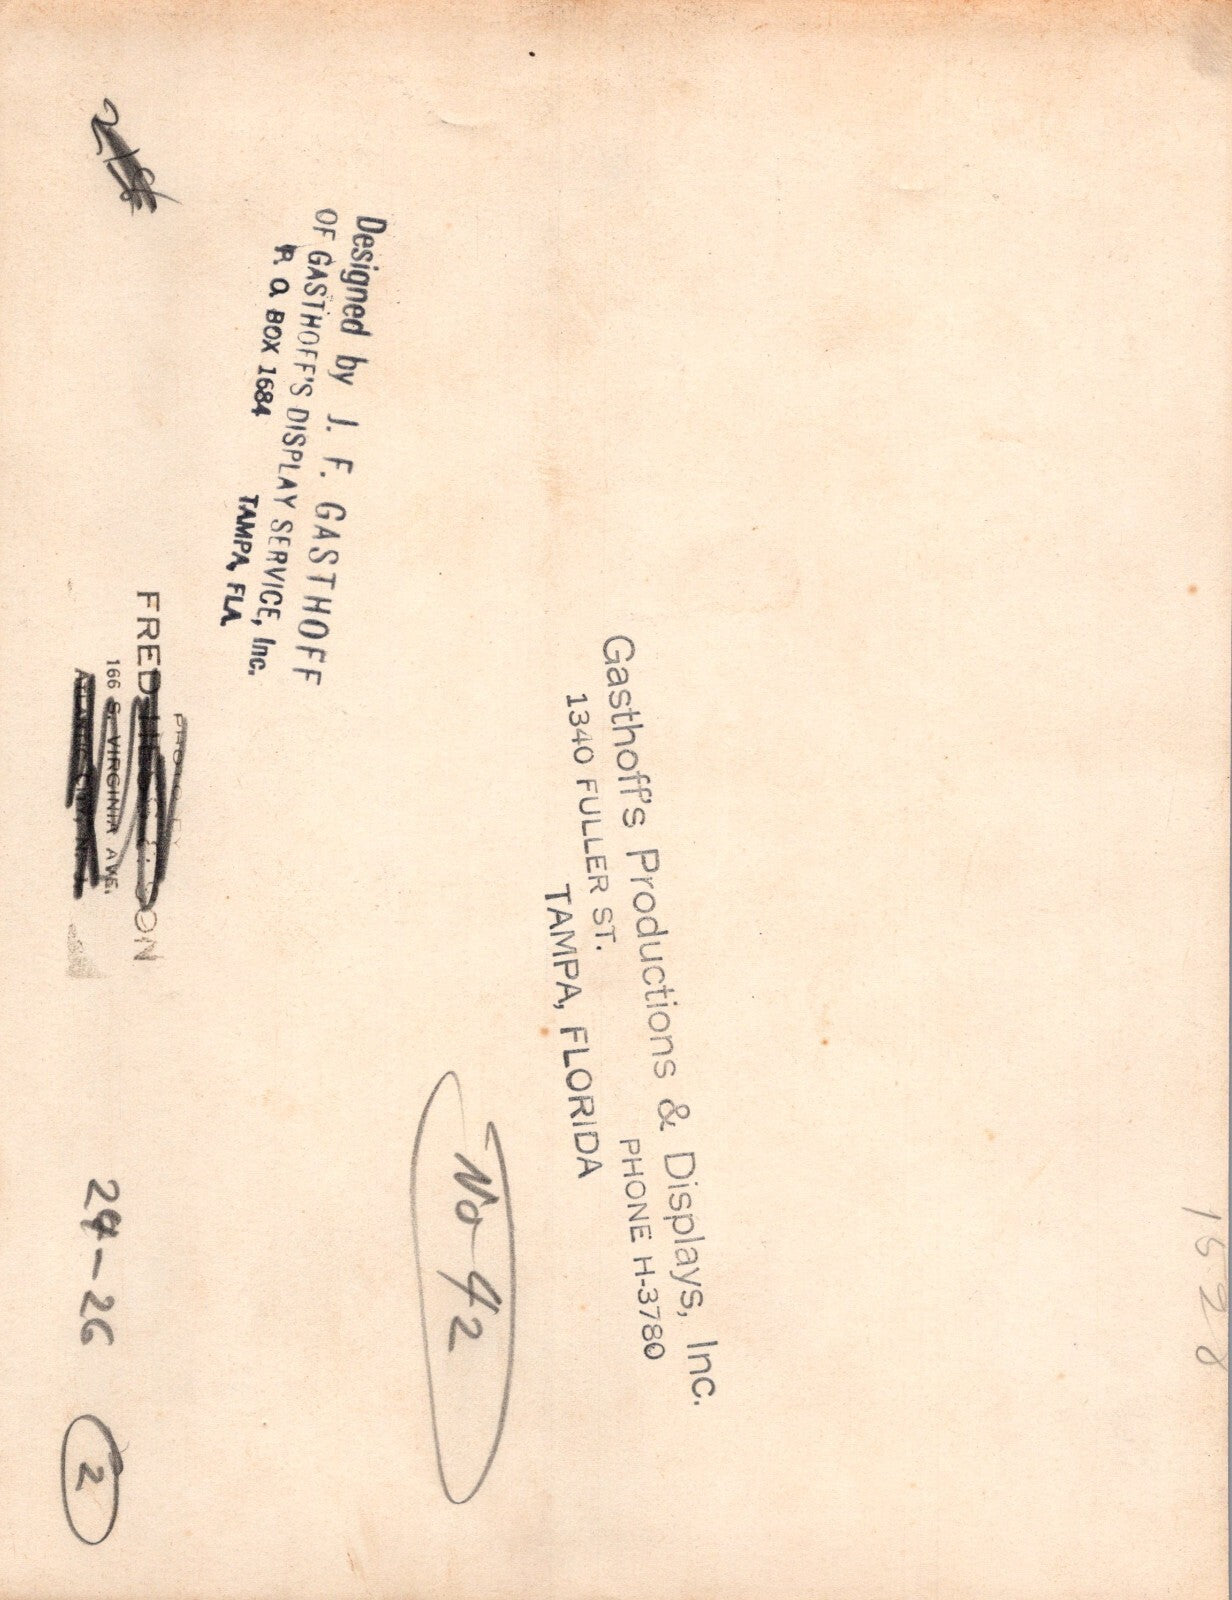 1528
Gasthoff's Productions & Displays, Inc.
1340 FULLER ST. PHONE H-3780
TAMPA, FLORIDA
No 42
Designed by J. F. GASTHOFF
OF GASTHOFF'S DISPLAY SERVICE, Inc.
P. O. BOX 1684 TAMPA, FLA.
FRED
166 S. VIRGINIA AVE.
ATLANTIC CITY, N. J.
24-26
2